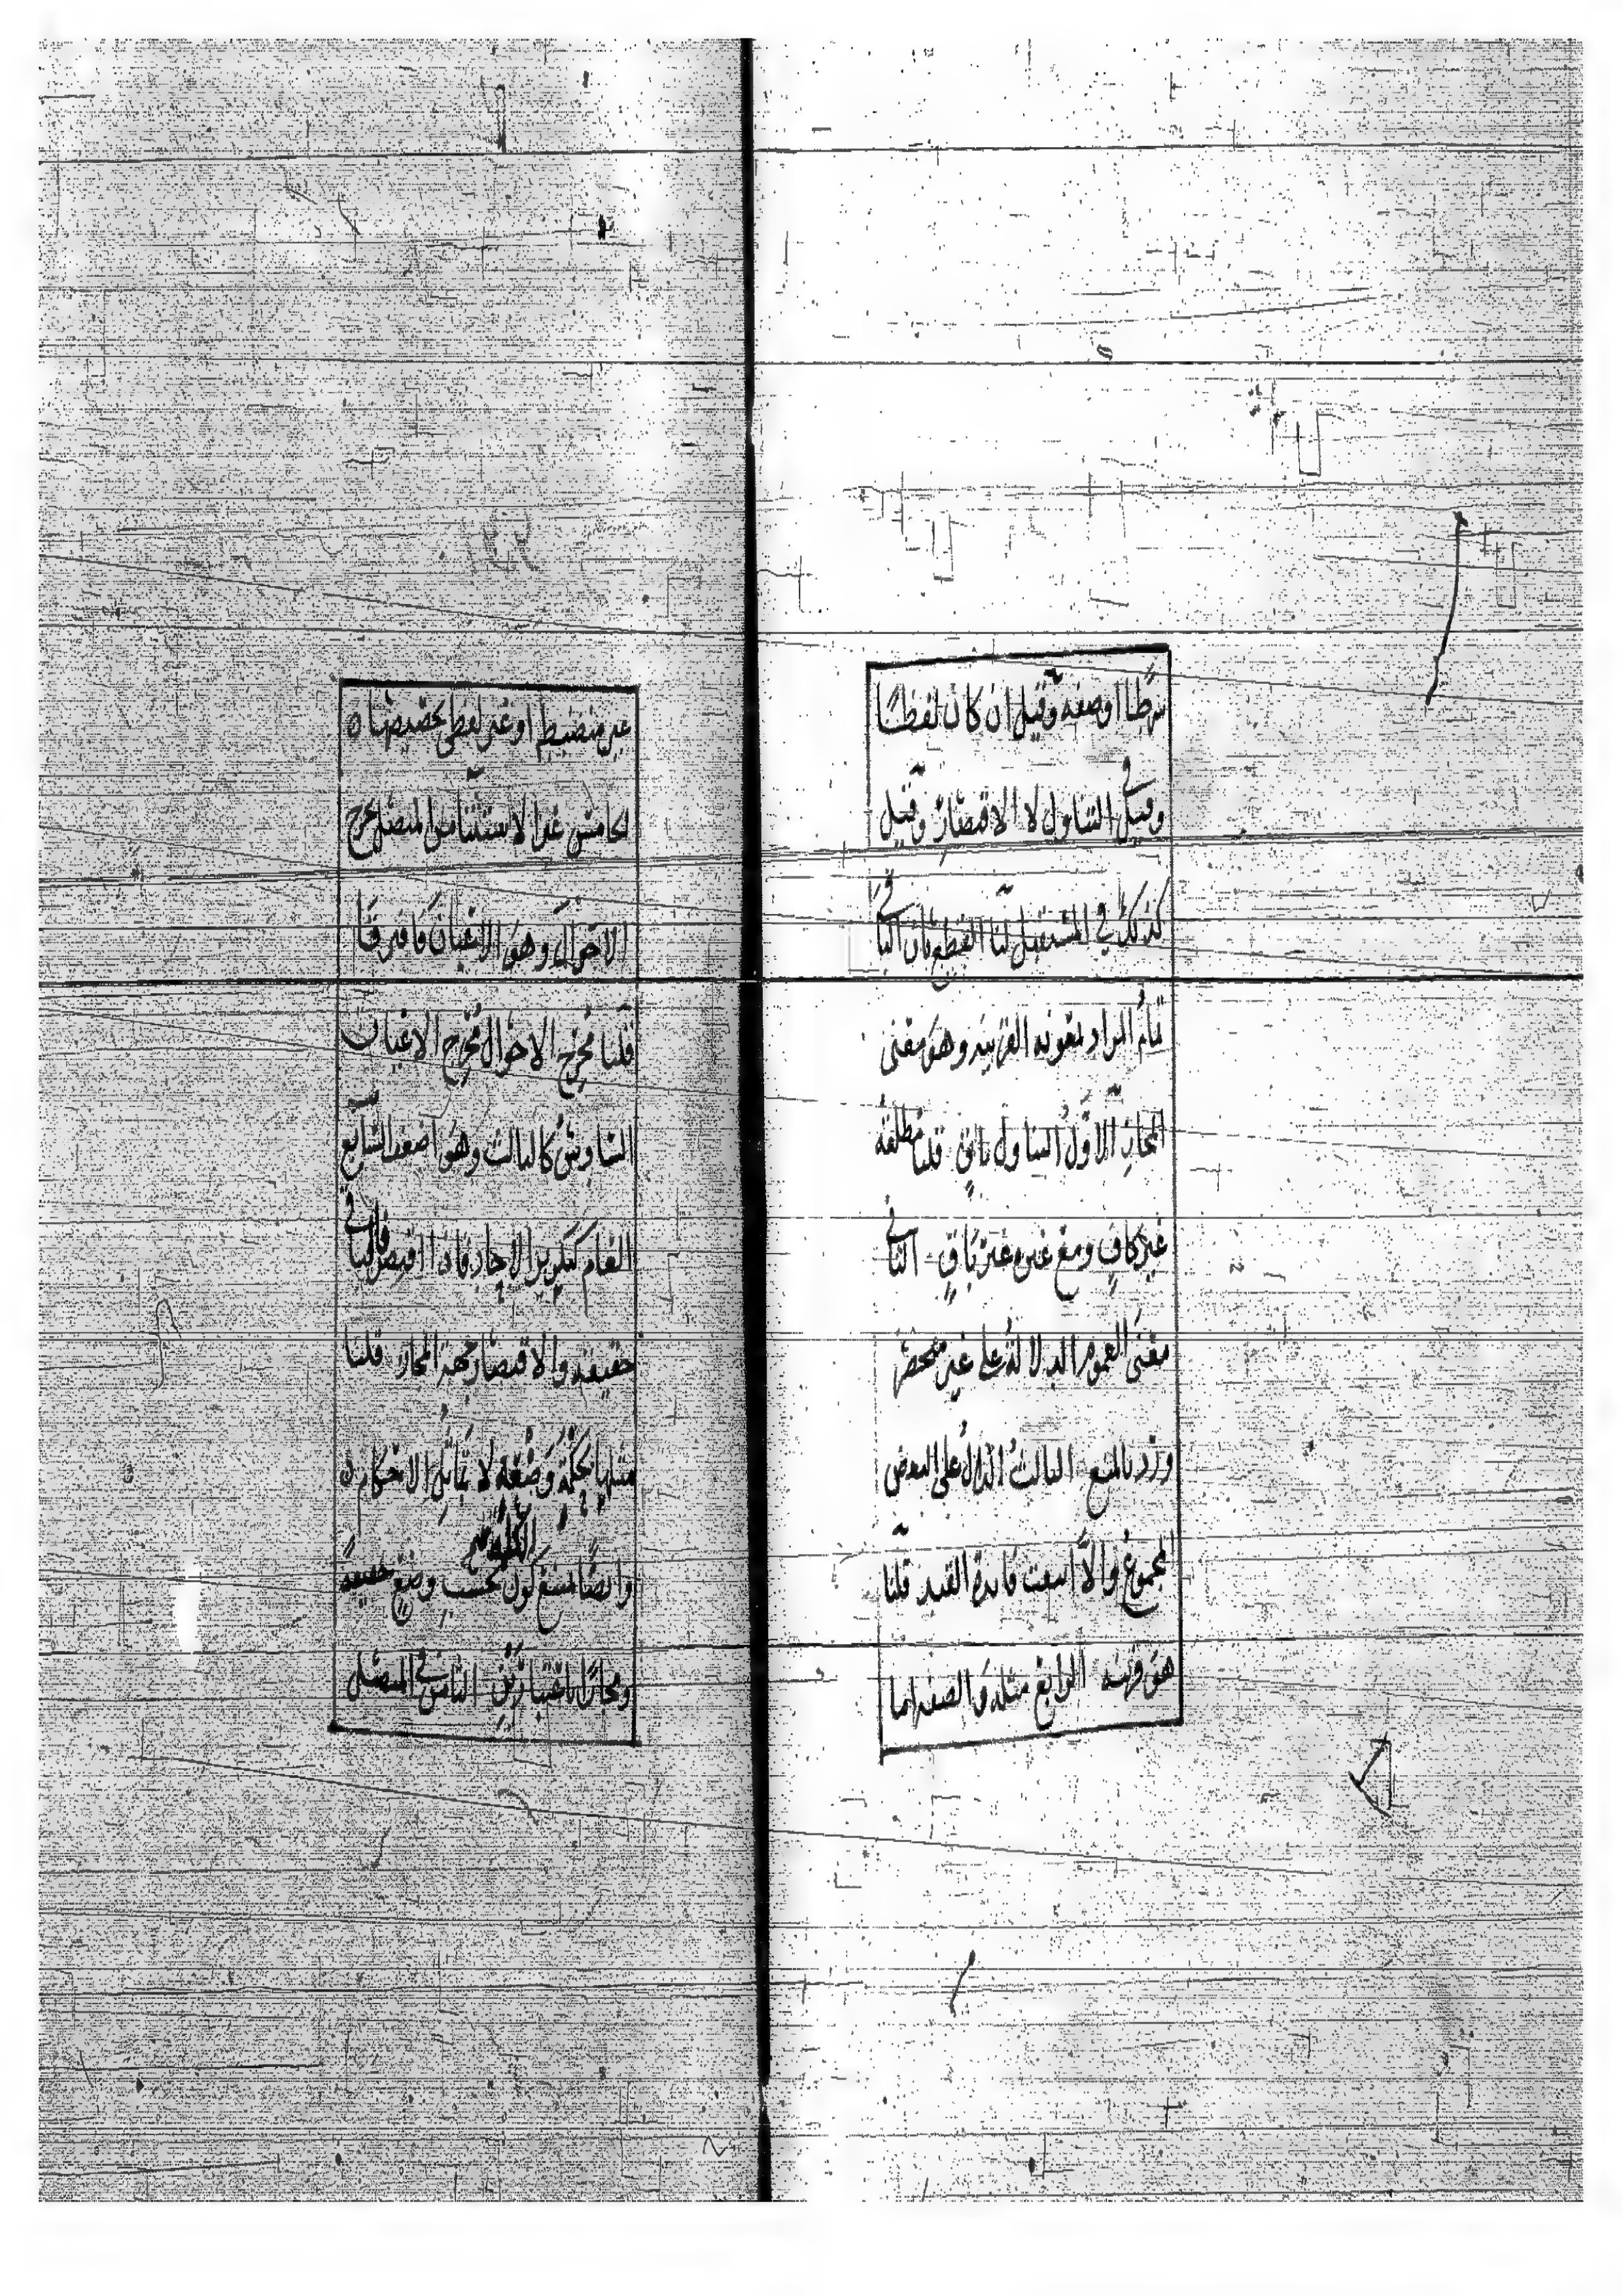 شرطا او صفة وقيل ان كان لفظيا
وقيل في التناول لا الاقتصار وقيل
كذلك في المستقبل لنا القطع بان الباقي
تمام المراد بمعونة القرينة وهو معنى
المجاز الاول التناول باق قلنا مطلقه
غير كاف ومع غيره غير باق الثاني
معنى العموم الدلالة على غير منحصر
ورد بالمنع الثالث الدال على البعض
المجموع والا انتفت فايدة القيد قلنا
هو قرينة الرابع مثله والصفة اما
غير منضبط او غير لفظي تخصيصها
الخامس غير الاستثنا من المتصل مخرج
الاحوال وهو الاعيان فافترقتا
قلنا مخرج الاحوال مخرج الاعيان
السادس كالثالث وهو اضعف السابع
العام كتكرير الاحاد فاذا اقتصر فالباقي
حقيقة والاقتصار جهة المجاز قلنا
مثلها حكمة وضعية لا تماثل الاحكام
وايضا منع كون الكلمة بحسب وضع حقيقة
ومجازا باعتبارين الثامن في المتصل